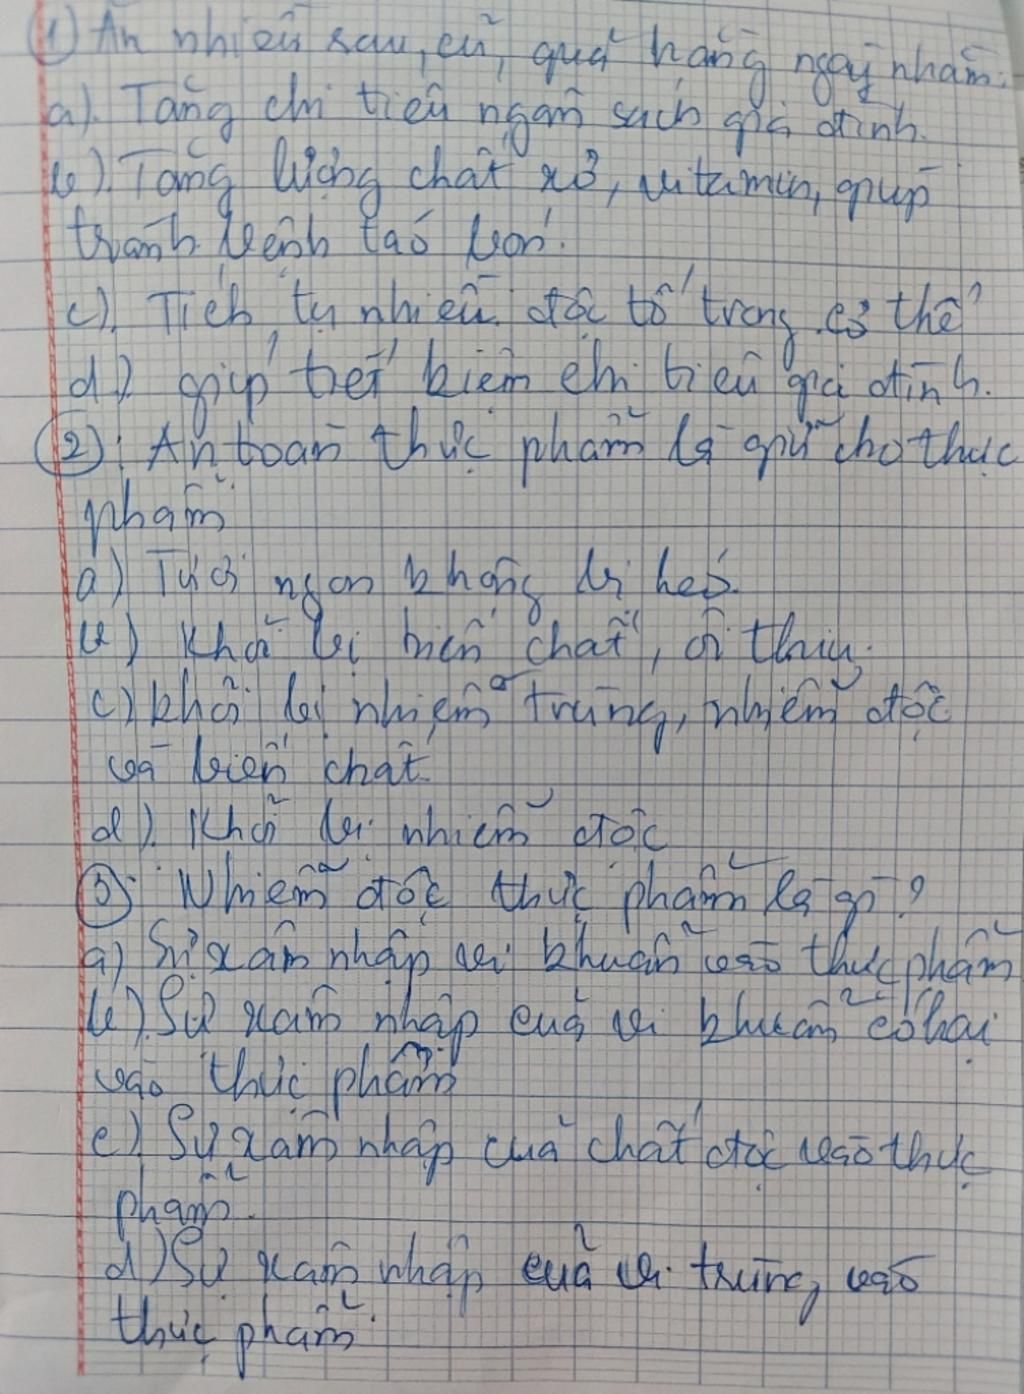 ① Ăn nhiều rau, củ, quả hằng ngày nhằm:
a). Tăng chi tiêu ngân sách gia đình.
b). Tăng lượng chất xơ, vitamin, giúp
tránh bệnh táo bón.
c). Tích tụ nhiều độc tố trong cơ thể
d) giúp tiết kiệm chi tiêu gia đình.
②: An toàn thực phẩm là giữ cho thực
phẩm
a) Tươi ngon không bị héo.
b) Khỏi bị biến chất, ôi thiu.
c) khỏi bị nhiễm trùng, nhiễm độc
và biến chất.
d). Khỏi bị nhiễm độc
③: Nhiễm độc thực phẩm là gì?
a) Sự xâm nhập vi khuẩn vào thực phẩm
b) Sự xâm nhập của vi khuẩn có hại
vào thực phẩm
c) Sự xâm nhập của chất độc vào thực
phẩm.
d) Sự xâm nhập của vi trùng vào
thực phẩm.